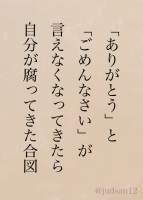 「ありがとう」と
「ごめんなさい」が
言えなくなってきたら
自分が腐ってきた合図
@judson12